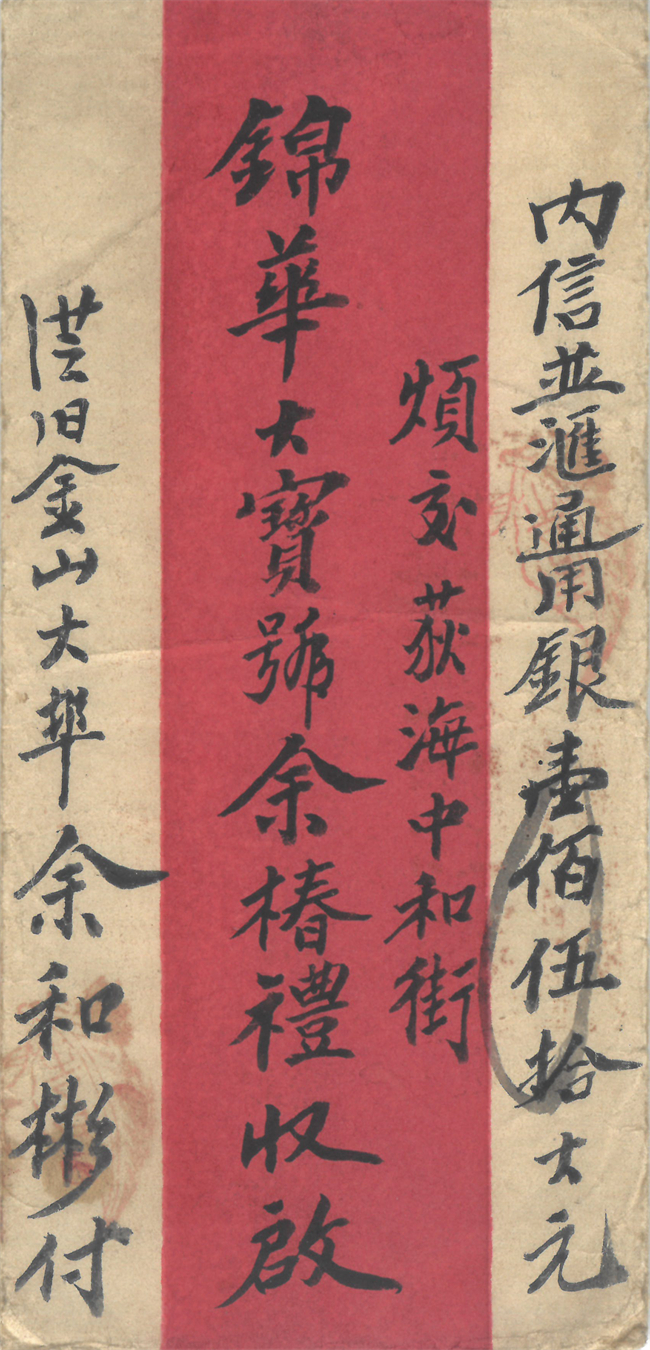 内信並滙通用銀壹佰伍拾大元
煩交荻海中和街
錦華大寶號余椿禮收啟
旧金山大埠余和彬付